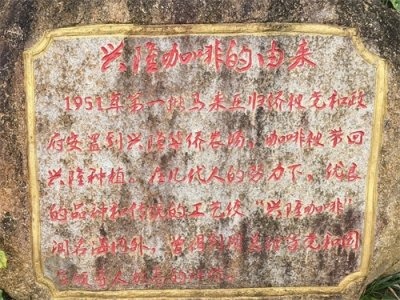 兴隆咖啡的由来
1951年第一批马来亚归侨被党和政
府安置到兴隆华侨农场，咖啡被带回
兴隆种植，在几代人的努力下，优良
的品种和传统的工艺使“兴隆咖啡”
闻名海内外，曾得到周总理等党和国
家领导人的高